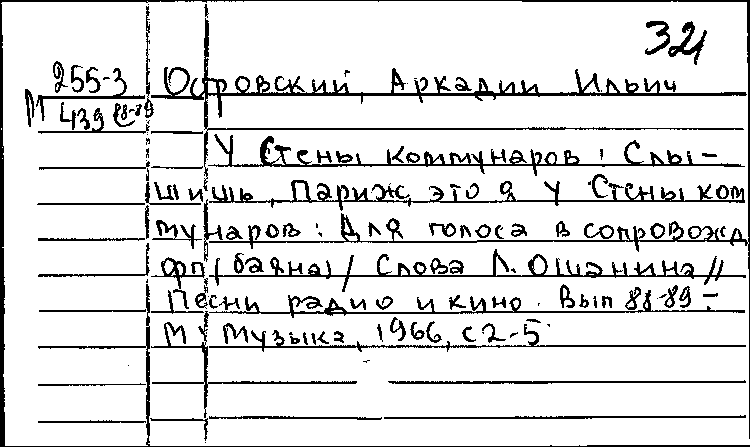 321
255-3 Островский, Аркадии Ильич
М 439 88-89
У Стены коммунаров: Слы-
шишь, Париж, это я у Стены ком
мунаров: Для голоса в сопровожд
фп (баяна) / Слова Л. Ошанина //
Песни радио и кино. Вып 88-89 -
М: Музыка, 1966, с 2-5